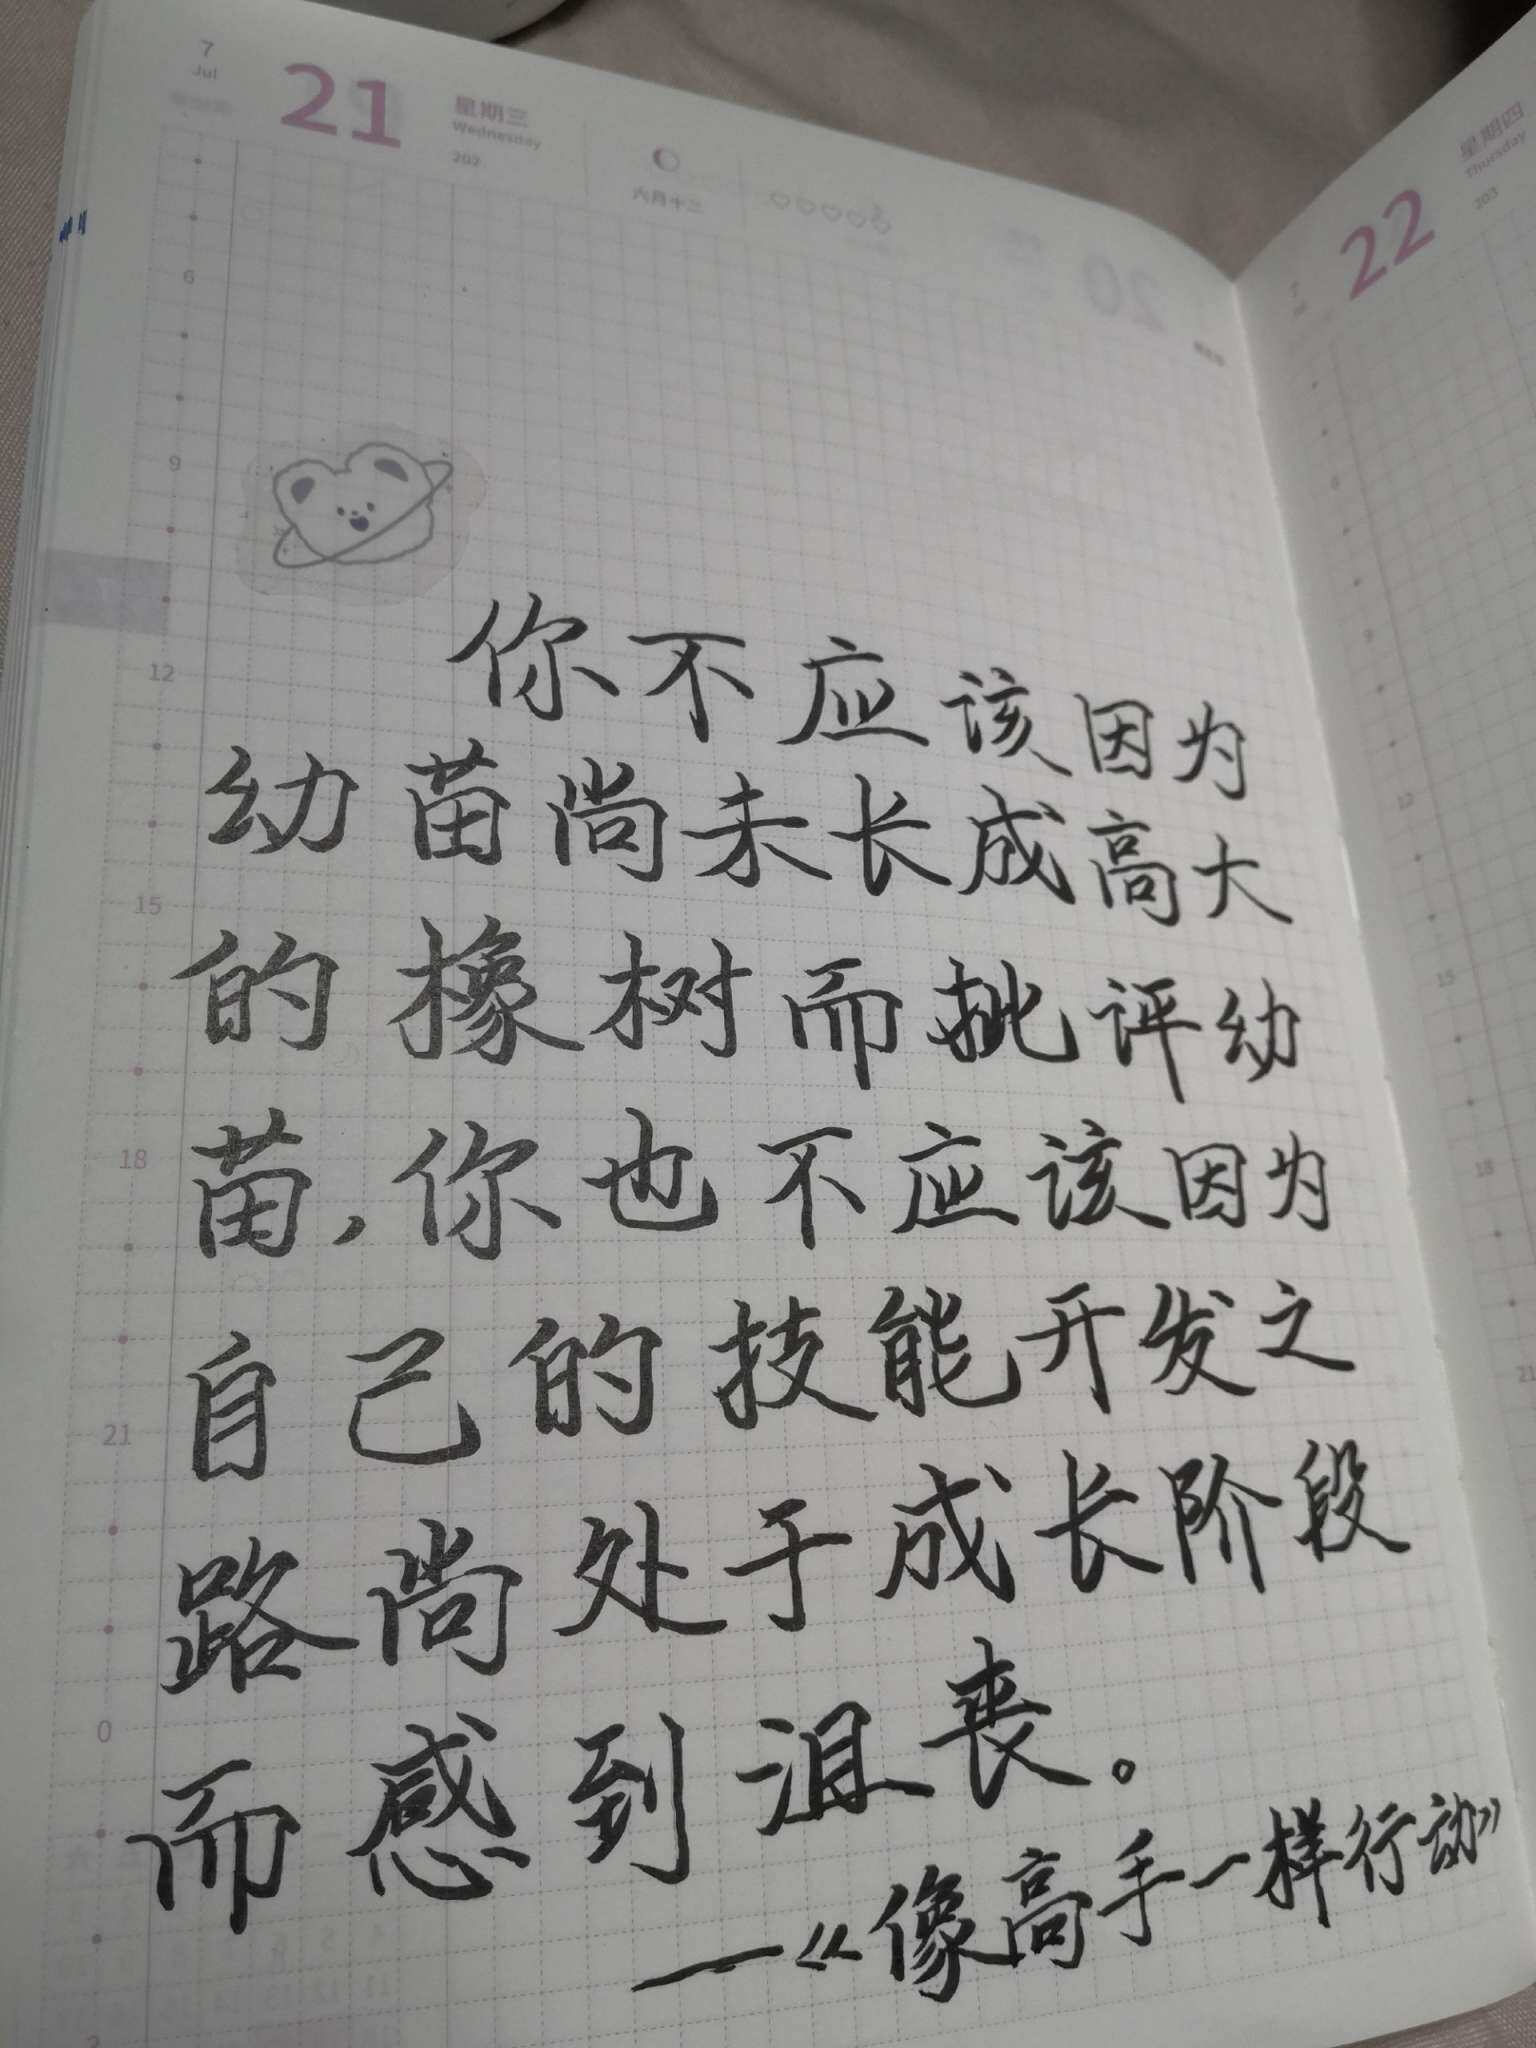 7
Jul
21
星期三
Wednesday
202
六月十二
20
6
9
12
15
18
21
0
你不应该因为
幼苗尚未长成高大
的橡树而批评幼
苗,你也不应该因为
自己的技能开发之
路尚处于成长阶段
而感到沮丧。
—《像高手一样行动》
22
星期四
Thursday
202
6
9
12
15
18
21